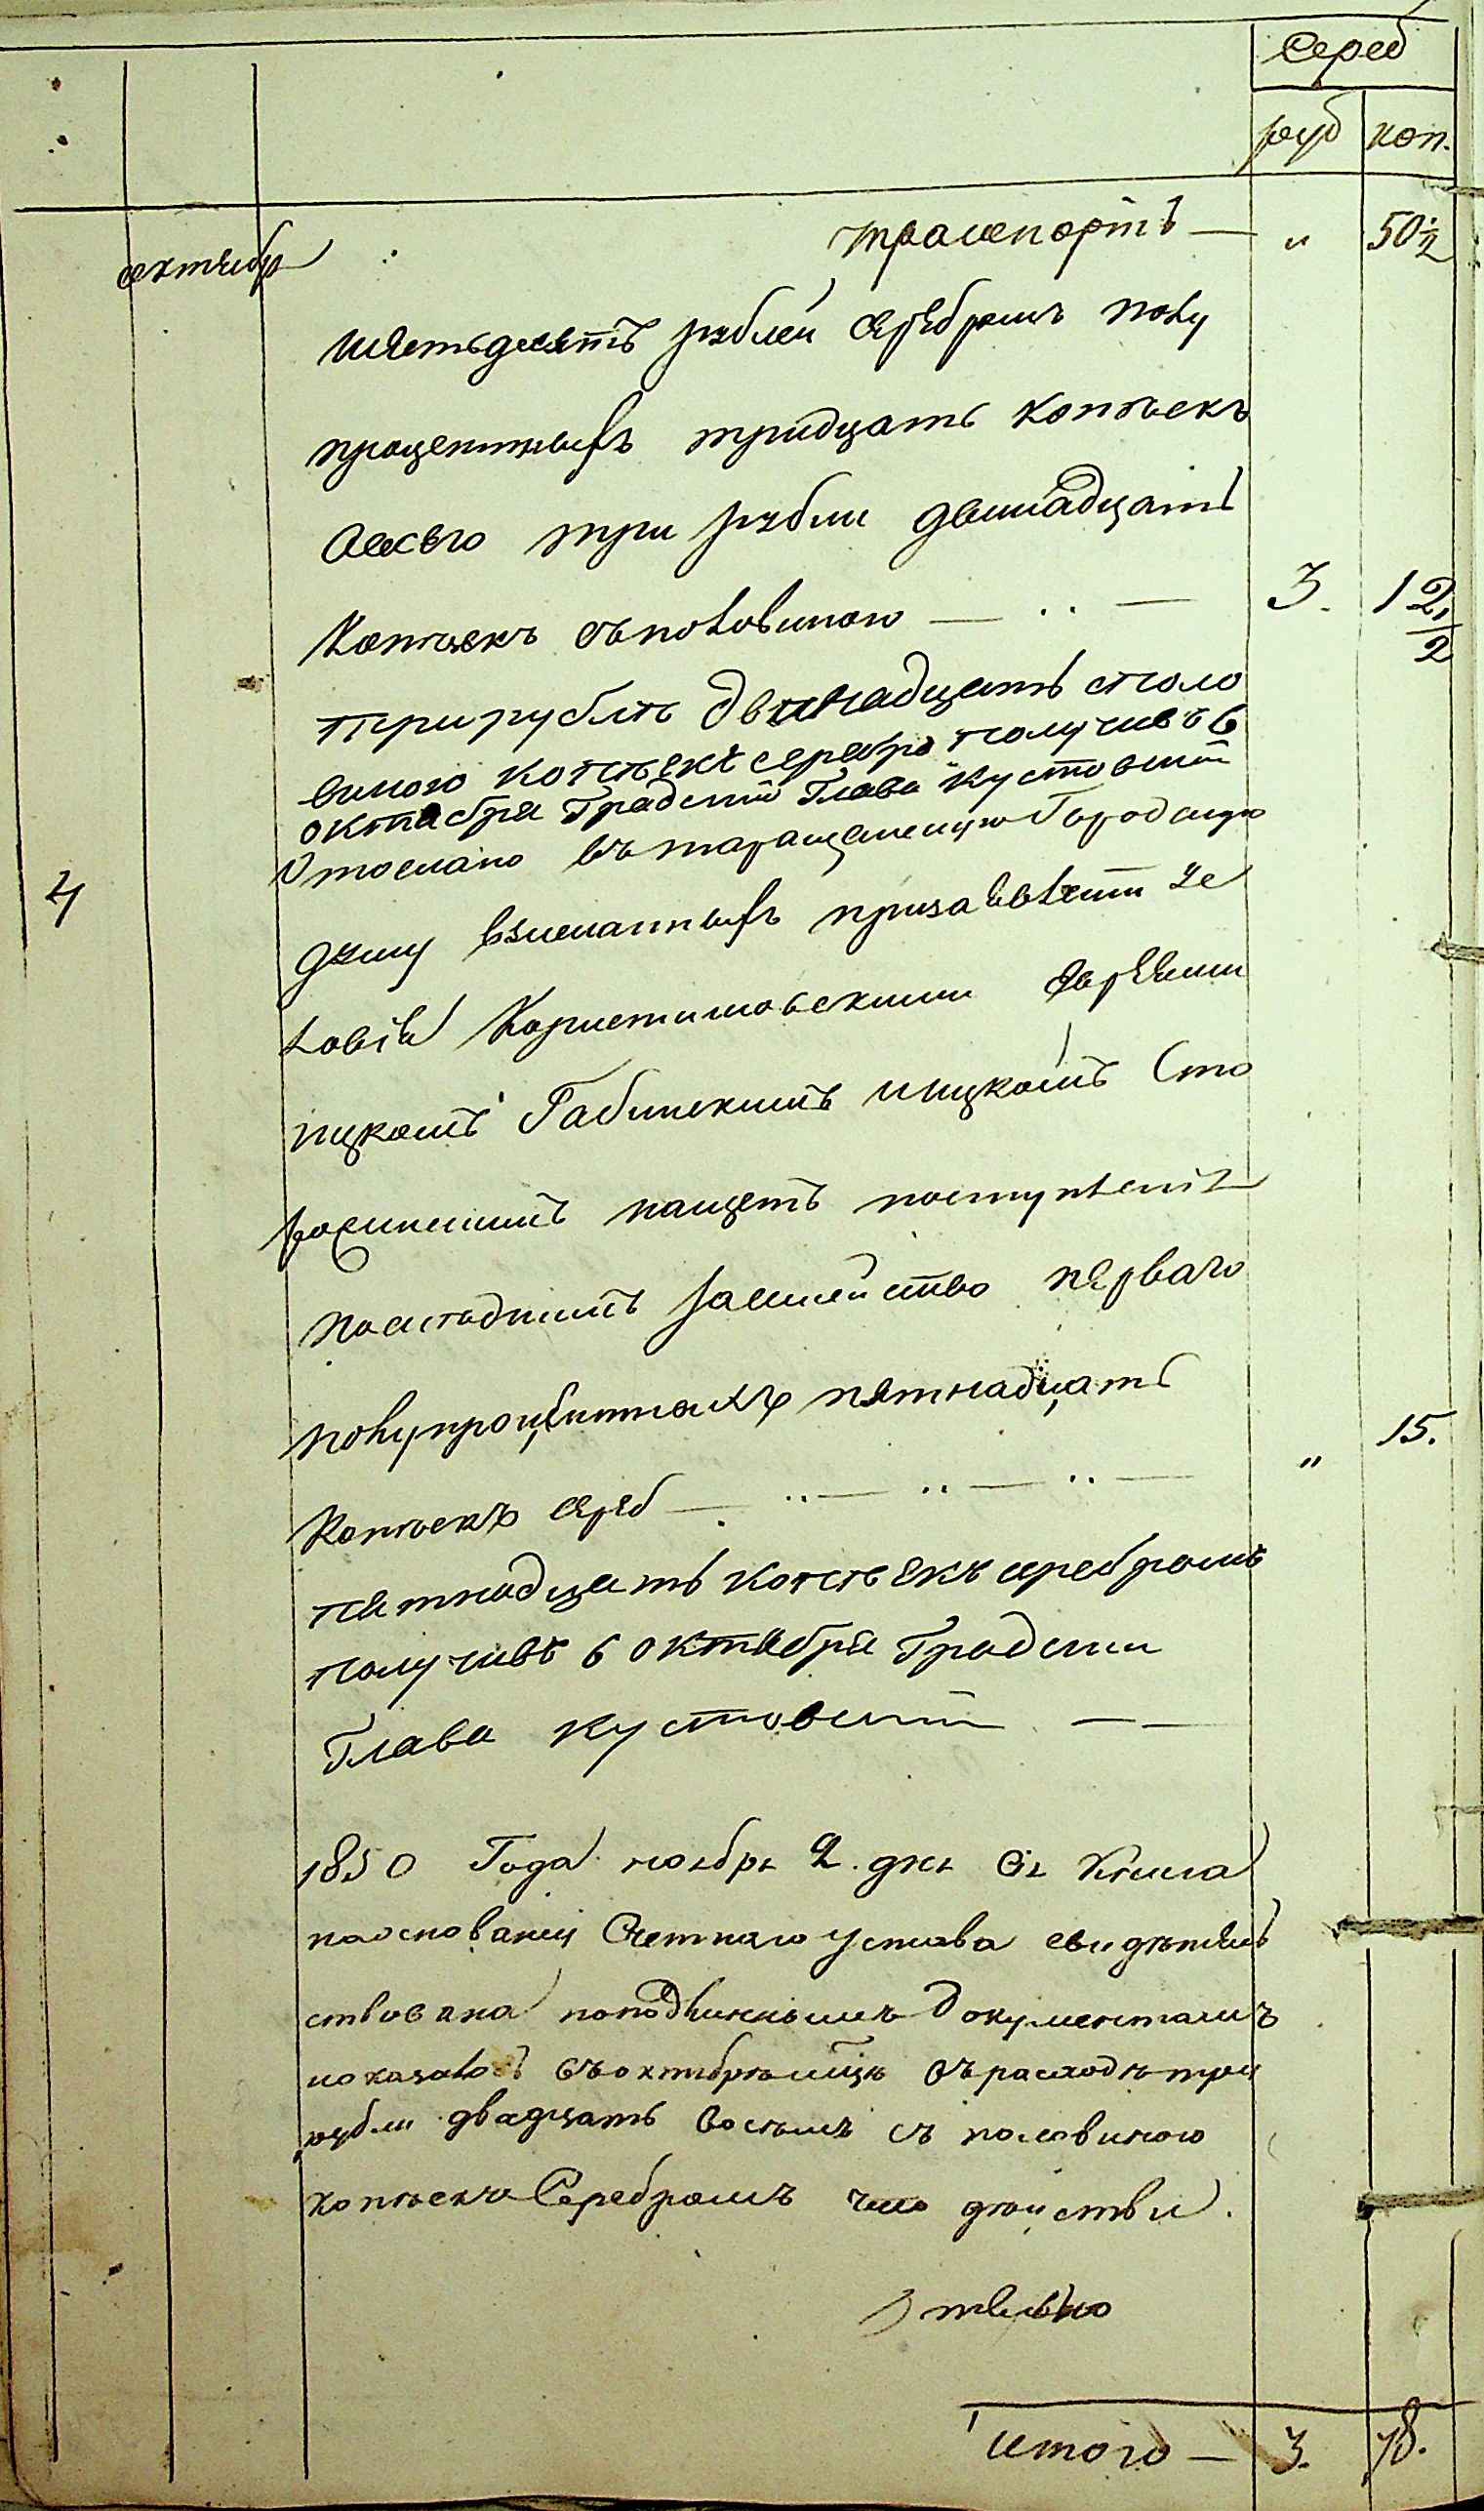 Сереб
руб коп.
транспортъ — „ 50 ½
октябр
шестьдесятъ рублей серебромъ полу
процентныхъ тридцать копѣекъ
всего три рубли двинадцать
Копѣекъ съполовиною — .. — 3. 12 ½
три рубле двинадцать споло
виною копѣекъ серебро получивъ 6
октабря Градский Глава Кустовский
4 Отослано въ таращанскую Городскую
думу взысканныхъ при заявлении че
ловѣк Користишовскими Евреями
ицкомъ Рабинскимъ ицкомъ Сто
нащетъ поступлениѣ
перваго
полупроцентныхъ пятнадцать
Копѣекъ сереб — .. — .. — .. — „ 15.
пятнадцать копѣекъ серебромъ
получивъ 6 октября Градский
Глава Кустовский — —
1850 Года ноября 2. дня Сія Книга
на основании Счетнаго устава свидѣтель
ствована по подлиннымъ документамъ
показалось въ октябрѣ м͠цѣ въ расходѣ три
рубли двадцать восемъ съ половиною
копѣекъ Серебромъ что дѣйстви.
тельно
итого — 3. 78.